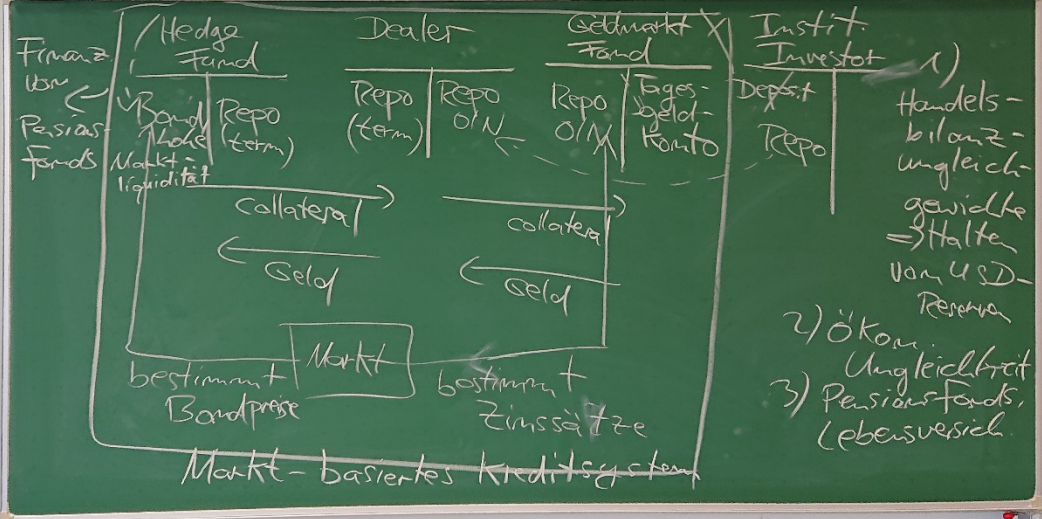 Finanz.
von
Pensions-
fonds
Hedge
Fund
Bond
hohe
Markt-
liquidität
Repo
(term)
Dealer
Repo
(term)
Repo
O/N
Geldmarkt
Fond
Repo
O/N
Tages-
geld-
Konto
Instit.
Investor
Deposit
Repo
collateral
Geld
collateral
Geld
Markt
bestimmt
Bondpreise
bestimmt
Zinssätze
Markt-basiertes Kreditsystem
1)
Handels-
bilanz-
ungleich-
gewichte
=> Halten
von USD-
Reserven
2) Ökon.
Ungleichheit
3) Pensionsfonds,
Lebensversich.